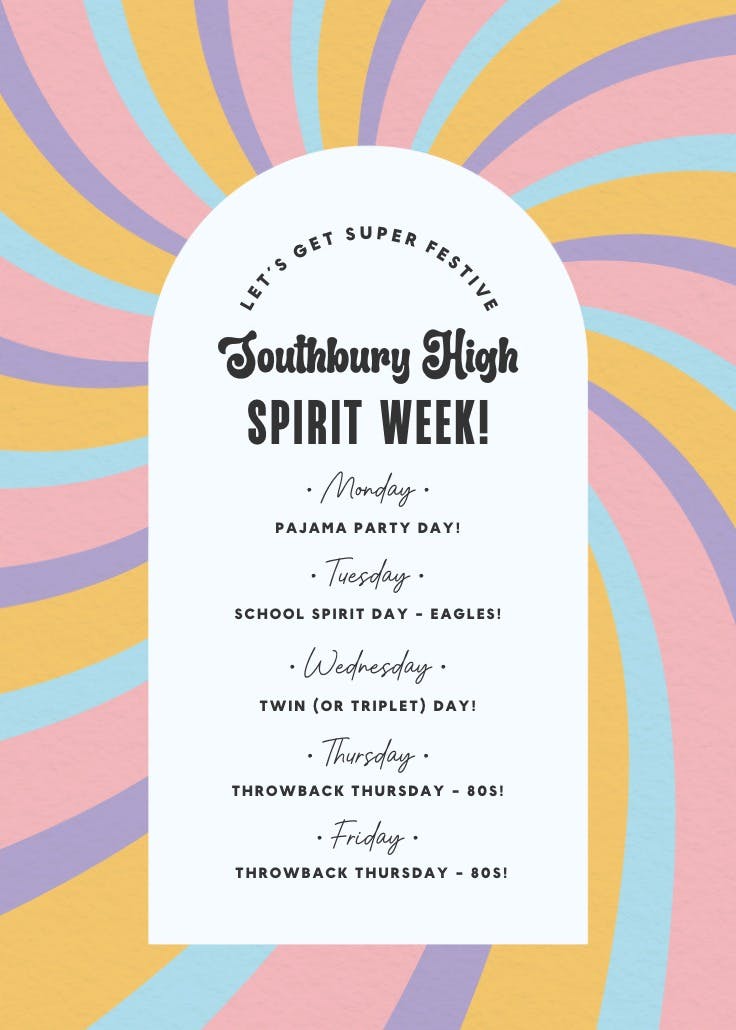 LET'S GET SUPER FESTIVE
Southbury High
SPIRIT WEEK!
• Monday •
PAJAMA PARTY DAY!
• Tuesday •
SCHOOL SPIRIT DAY - EAGLES!
• Wednesday •
TWIN (OR TRIPLET) DAY!
• Thursday •
THROWBACK THURSDAY - 80S!
• Friday •
THROWBACK THURSDAY - 80S!